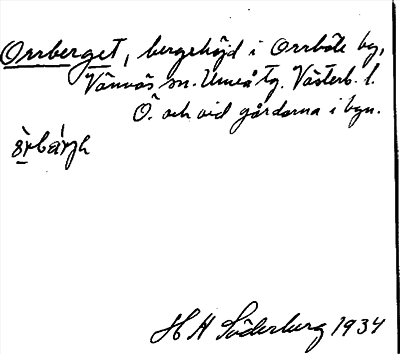 Orrberget, bergshöjd i Orrböle by,
Vännäs sn. Umeå tg. Västerb. l.
Ö. och vid gårdarna i byn.
H A Söderburg 1934